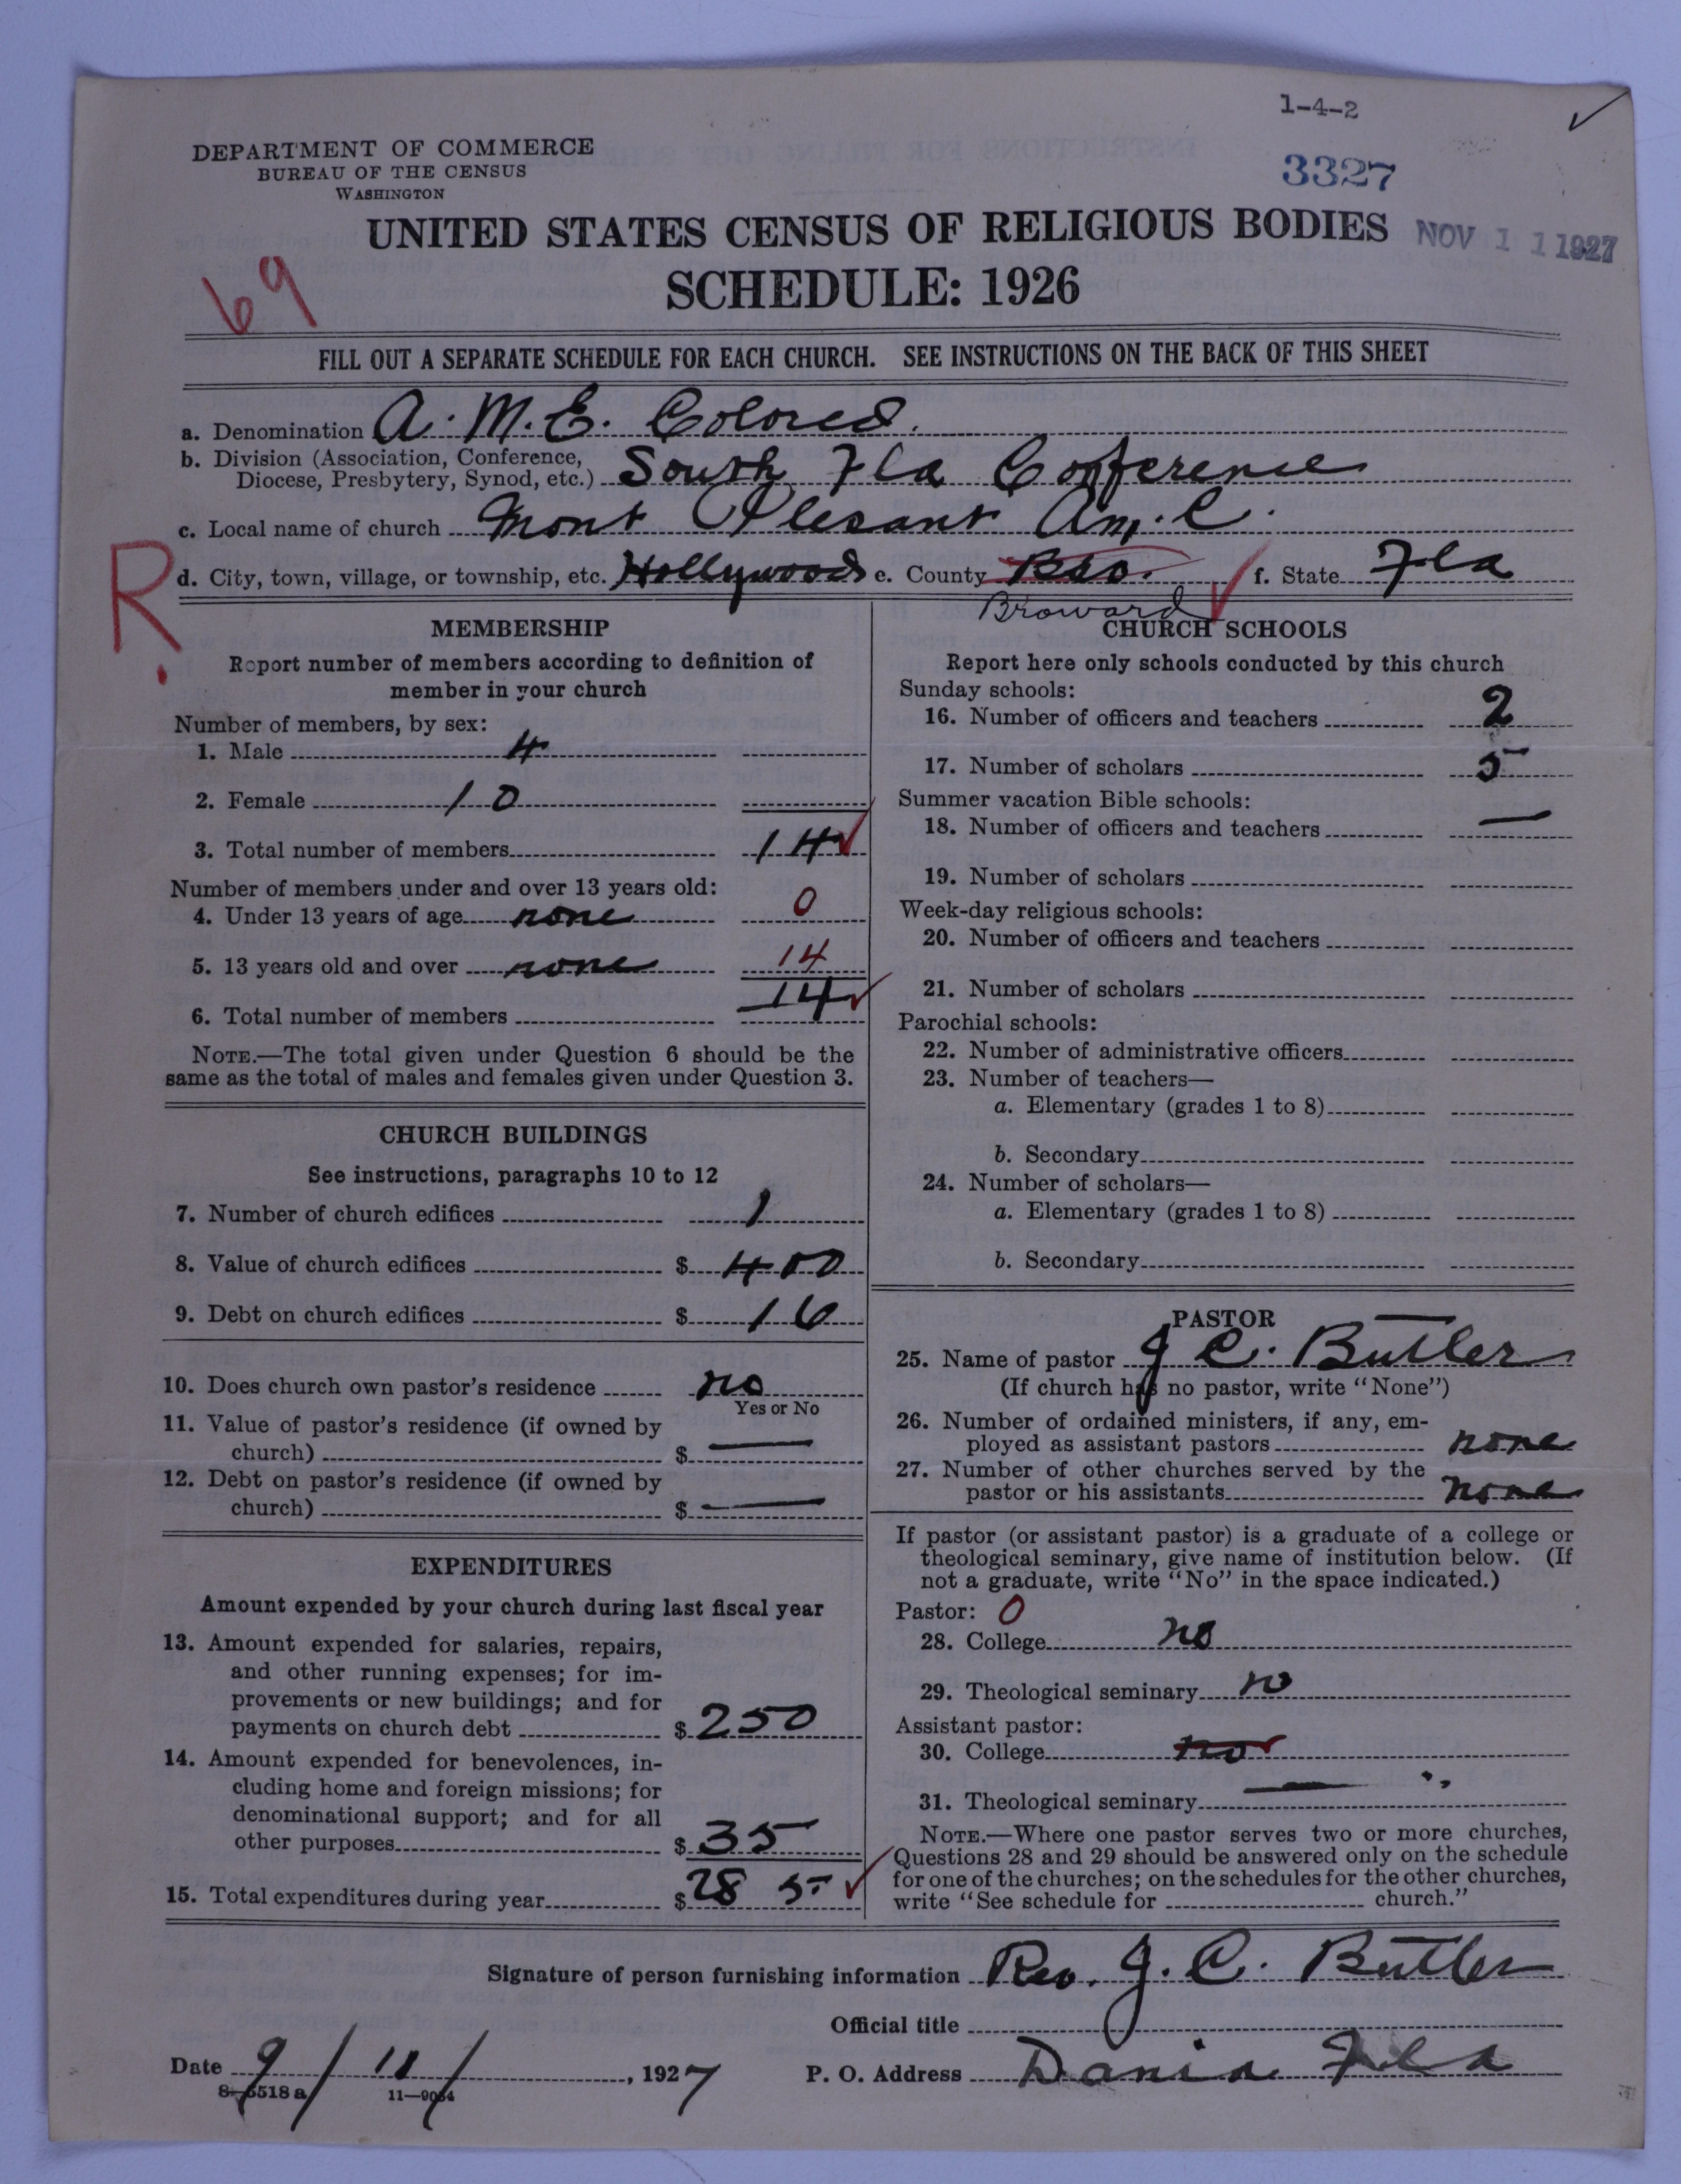 1-4-2
DEPARTMENT OF COMMERCE
BUREAU OF THE CENSUS
WASHINGTON
3327
UNITED STATES CENSUS OF RELIGIOUS BODIES
NOV 11 1927
SCHEDULE: 1926
69
FILL OUT A SEPARATE SCHEDULE FOR EACH CHURCH. SEE INSTRUCTIONS ON THE BACK OF THIS SHEET
a. Denomination A. M. E. Colored.
b. Division (Association, Conference, Diocese, Presbytery, Synod, etc.) South Fla Conference
c. Local name of church Mont Plesant Am. E.
R.
d. City, town, village, or township, etc. Hollywood e. County Bro. f. State Fla
Broward
MEMBERSHIP
Report number of members according to definition of
member in your church
Number of members, by sex:
1. Male 4
2. Female 10
3. Total number of members 14
Number of members under and over 13 years old:
4. Under 13 years of age none 0
5. 13 years old and over none 14
6. Total number of members 14
NOTE.—The total given under Question 6 should be the
same as the total of males and females given under Question 3.
CHURCH BUILDINGS
See instructions, paragraphs 10 to 12
7. Number of church edifices 1
8. Value of church edifices $ 400
9. Debt on church edifices $ 16
10. Does church own pastor's residence no
Yes or No
11. Value of pastor's residence (if owned by
church) $ —
12. Debt on pastor's residence (if owned by
church) $ —
EXPENDITURES
Amount expended by your church during last fiscal year
13. Amount expended for salaries, repairs,
and other running expenses; for im-
provements or new buildings; and for
payments on church debt $ 250
14. Amount expended for benevolences, in-
cluding home and foreign missions; for
denominational support; and for all
other purposes $ 35
15. Total expenditures during year $ 285
CHURCH SCHOOLS
Report here only schools conducted by this church
Sunday schools:
16. Number of officers and teachers 2
17. Number of scholars 5
Summer vacation Bible schools:
18. Number of officers and teachers —
19. Number of scholars
Week-day religious schools:
20. Number of officers and teachers
21. Number of scholars
Parochial schools:
22. Number of administrative officers
23. Number of teachers—
a. Elementary (grades 1 to 8)
b. Secondary
24. Number of scholars—
a. Elementary (grades 1 to 8)
b. Secondary
PASTOR
25. Name of pastor J C. Butler
(If church has no pastor, write "None")
26. Number of ordained ministers, if any, em-
ployed as assistant pastors none
27. Number of other churches served by the
pastor or his assistants none
If pastor (or assistant pastor) is a graduate of a college or
theological seminary, give name of institution below. (If
not a graduate, write "No" in the space indicated.)
Pastor: 0
28. College no
29. Theological seminary no
Assistant pastor:
30. College no
31. Theological seminary —
NOTE.—Where one pastor serves two or more churches,
Questions 28 and 29 should be answered only on the schedule
for one of the churches; on the schedules for the other churches,
write "See schedule for church."
Signature of person furnishing information Rev. J. C. Butler
Official title
Date 9/11/, 1927 P. O. Address Dania Fla
8-5518 a 11-9054